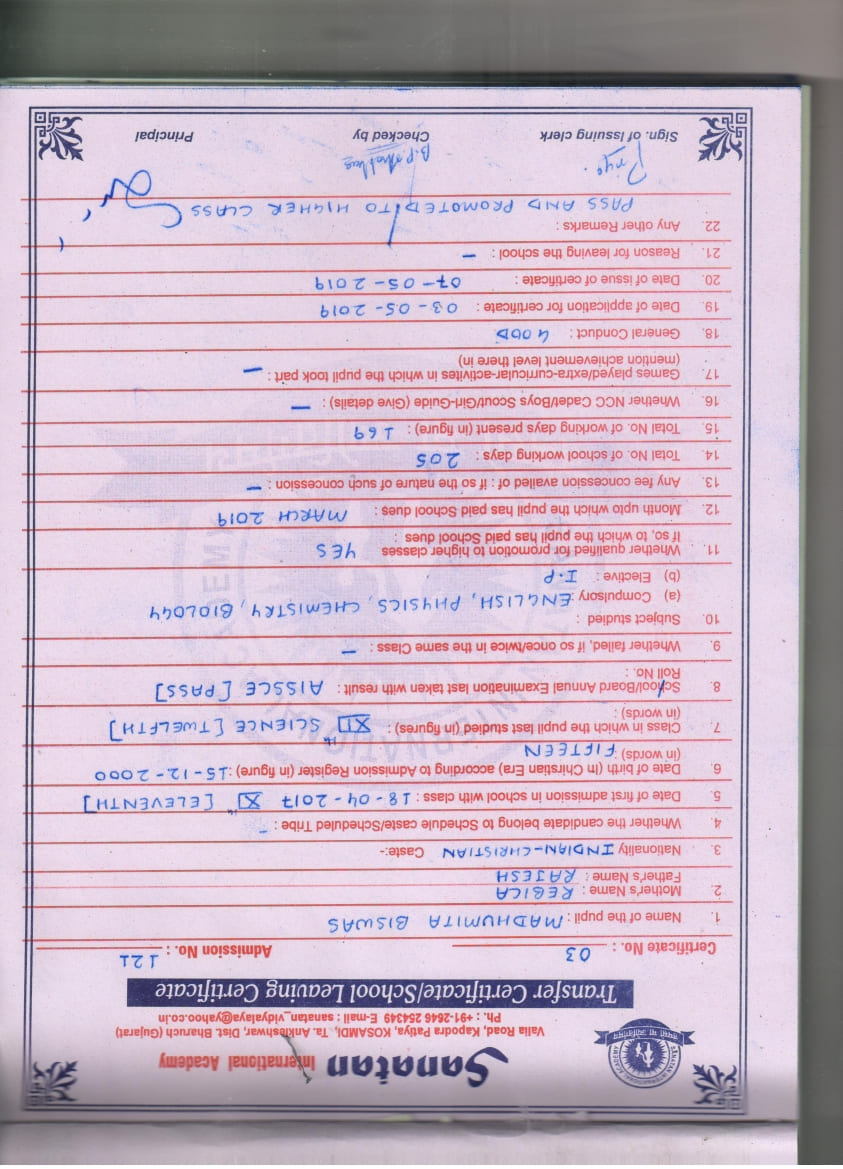 Sanatan International Academy
Valia Road, Kapodra Patiya, KOSAMDI, Ta. Ankleshwar, Dist. Bharuch (Gujarat)
Ph. : +91- 2646 254349 E-mail : sanatan_vidyalaya@yahoo.co.in
Transfer Certificate/School Leaving Certificate
Certificate No. : 03 Admission No. : 121
1. Name of the pupil : MADHUMITA BISWAS
2. Mother's Name : REGICA
Father's Name : RAJESH
3. Nationality INDIAN-CHRISTIAN Caste:-
4. Whether the candidate belong to Schedule caste/Scheduled Tribe : -
5. Date of first admission in school with class : 18-04-2017 XIth [ELEVENTH]
6. Date of birth (In Chirstian Era) according to Admission Register (in figure) : 15-12-2000
(in words) FIFTEEN
7. Class in which the pupil last studied (in figures) : XIIth SCIENCE [TWELFTH]
(in words) :
8. School/Board Annual Examination last taken with result : AISSCE [PASS]
Roll No. :
9. Whether failed, if so once/twice in the same Class : -
10. Subject studied :
(a) Compulsory : ENGLISH, PHYSICS, CHEMISTRY, BIOLOGY
(b) Elective : I.P
11. Whether qualified for promotion to higher classes YES
If so, to which the pupil has paid School dues :
12. Month upto which the pupil has paid School dues : MARCH 2019
13. Any fee concession availed of : if so the nature of such concession : -
14. Total No. of school working days : 205
15. Total No. of working days present (in figure) : 169
16. Whether NCC Cadet/Boys Scout/Girl-Guide (Give details) : -
17. Games played/extra-curricular-activites in which the pupil took part : -
(mention achievement level there in)
18. General Conduct : GOOD
19. Date of application for certificate : 03-05-2019
20. Date of issue of certificate : 07-05-2019
21. Reason for leaving the school : -
22. Any other Remarks :
PASS AND PROMOTED TO HIGHER CLASS
Priya.
Sign. of Issuing clerk Checked by Principal